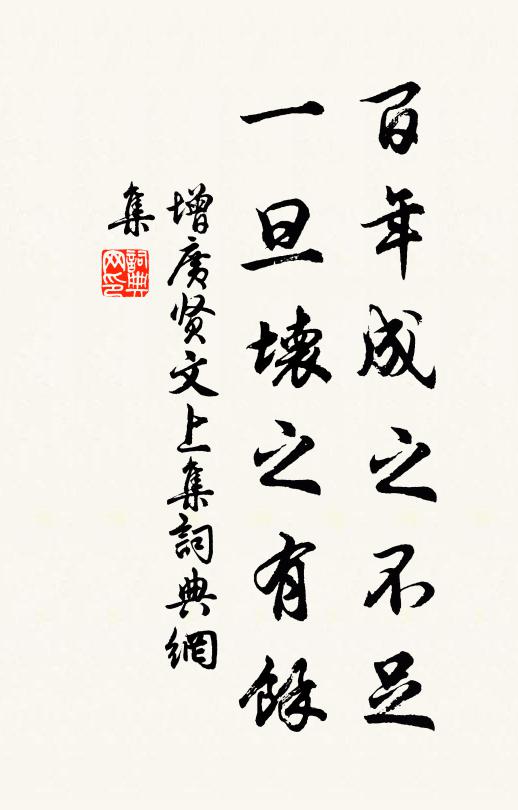 百年成之不足
一旦壞之有餘
增廣贤文上集詞典網
集
詞典
网印